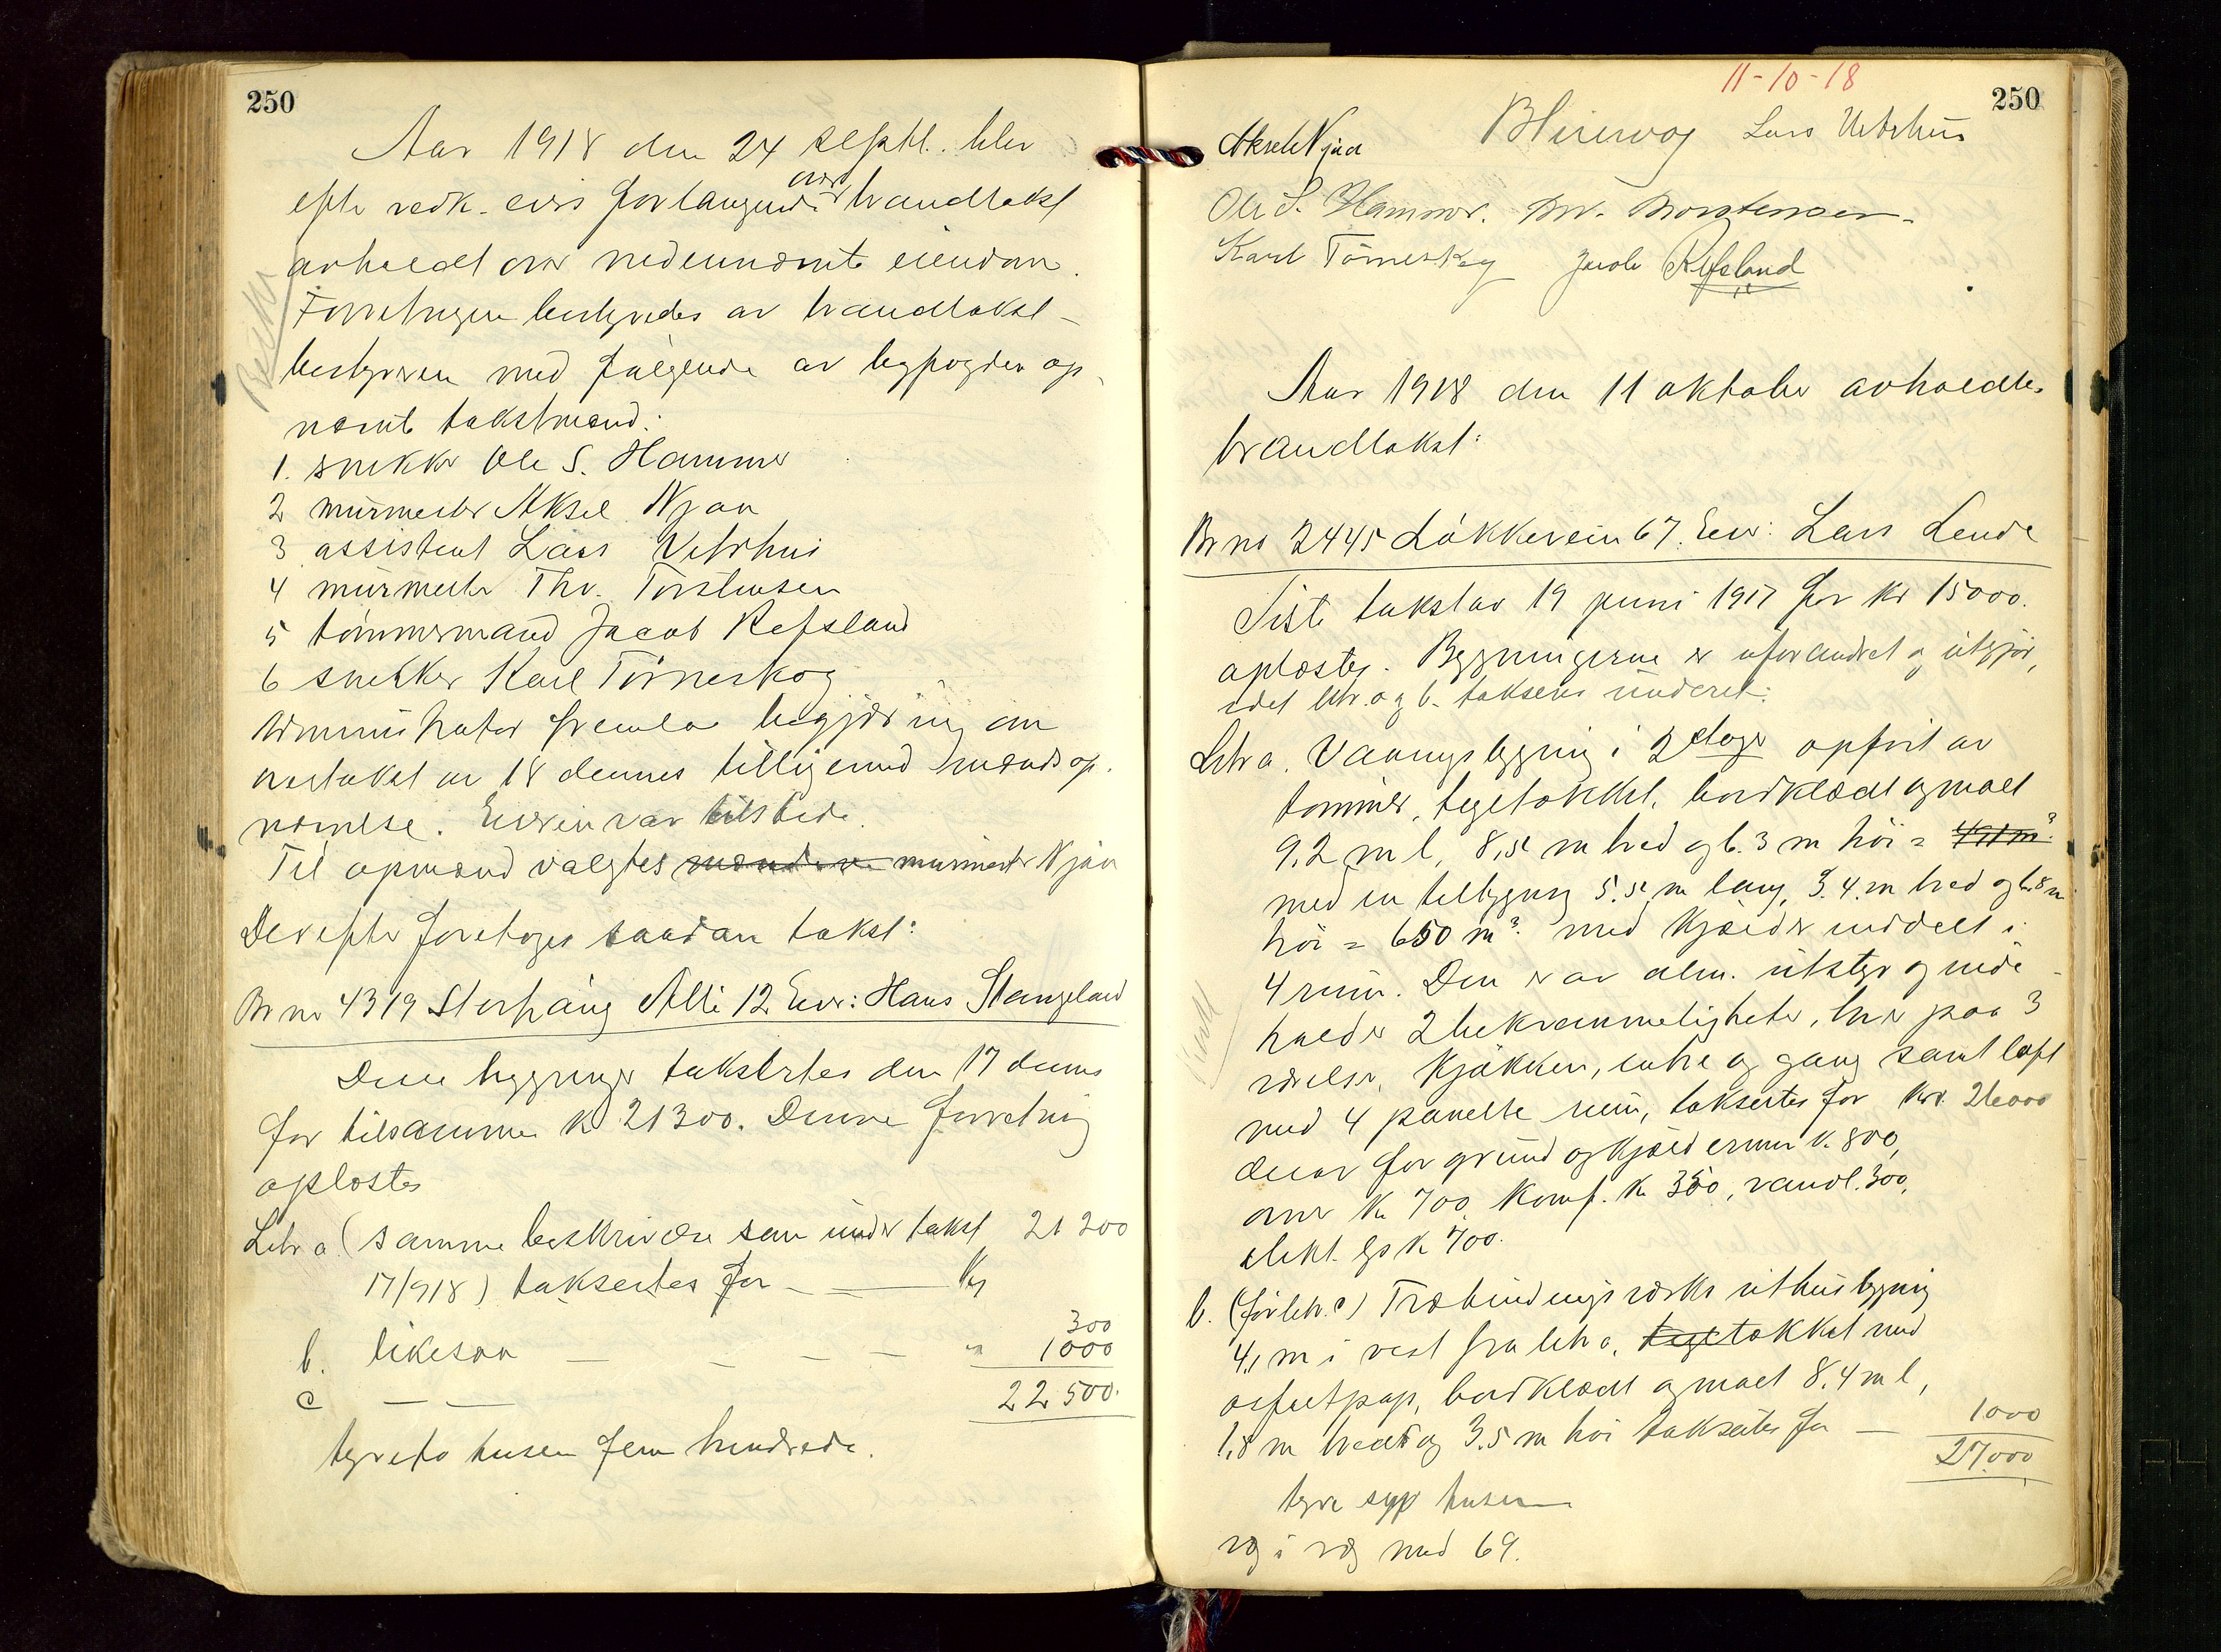 250
Aar 1918 den 24 septbr. blev
efter vedk. eiers forlangende over brandtakst
avholdt over nedennævnte eiendom.
Forretningen bestyredes av brandtakst-
bestyreren med følgende av byfogden op-
nævnte takstmænd:
1. snekker Ole S. Hammer
2 murmester Aksel Njaa
3 assistent Lars Vetrhus
4 murmester Thv. Torstensen
5 tömmermand Jacob Refsland
6 snekker Karl Törneskog
Administrator fremla begjæring om
overtakst av 18 dennes tilligemed mænds op-
nævnelse. Eieren var tilstede.
Til opmand valgtes murmester Njaa
Derefter foretoges saadan takst:
Br no 4319 Storhaug Allé 12 Eier: Hans Stangeland
Disse bygninger taksertes den 17 dennes
for tilsammen kr 21300. Denne forretning
oplæstes
Litr a (samme beskrivelse som under takst 21 200
17/918) takserteS for — — Kr
300
b. likesaa — — — — " 1000
c — — 22.500.
tyveto tusen fem hundrede.
11-10-18
250
Aksel Njaa Lars Vetrhus
Ole S. Hammer. Thv. Thorstensen.
Karl Törneskog Jacob Refsland
Aar 1918 den 11 oktober avholdtes
brandtakst:
Br no 2445 Lökkevein 67. Eier: Lars Lende
Siste takst av 19 juni 1917 for kr 15000.
oplæstes. Bygningerne er uforandret og utgjör,
idet litr. a og b. takseres underet:
Litr a. Vaaningsbygning i 2 etager opfört av
tömmer, teglstækket, bordklædt og malt
9.2 m l, 8,5 m bred og 6.3 m höi = 491 m³
med en tilbygning 5.5 m lang, 3.4 m bred og 6.8 m
höi = 650 m³. med kjælder inddelt i
4 rum. Den er av alm. utstyr og inde-
holder 2 bekvemmeligheter, hver paa 3
værelser, kjökken, entre og gang samt loft
med 4 panelte rum, takserteS for kr. 26000
derav for grund og kjældermur k. 800,
ovner kr 700, komf. kr 350, vandl. 300,
elekt. lys kr 700.
b. (för litr. c) Træbindingsverks uthusbygning
4,1 m i vest fra litr a, tegltækket med
asfaltpap, bordklædt og malt 8.4 m l,
1.8 m bred og 3.5 m höi takserteS for — 1000
27.000
tyve syv tusen
væg i væg med 69.